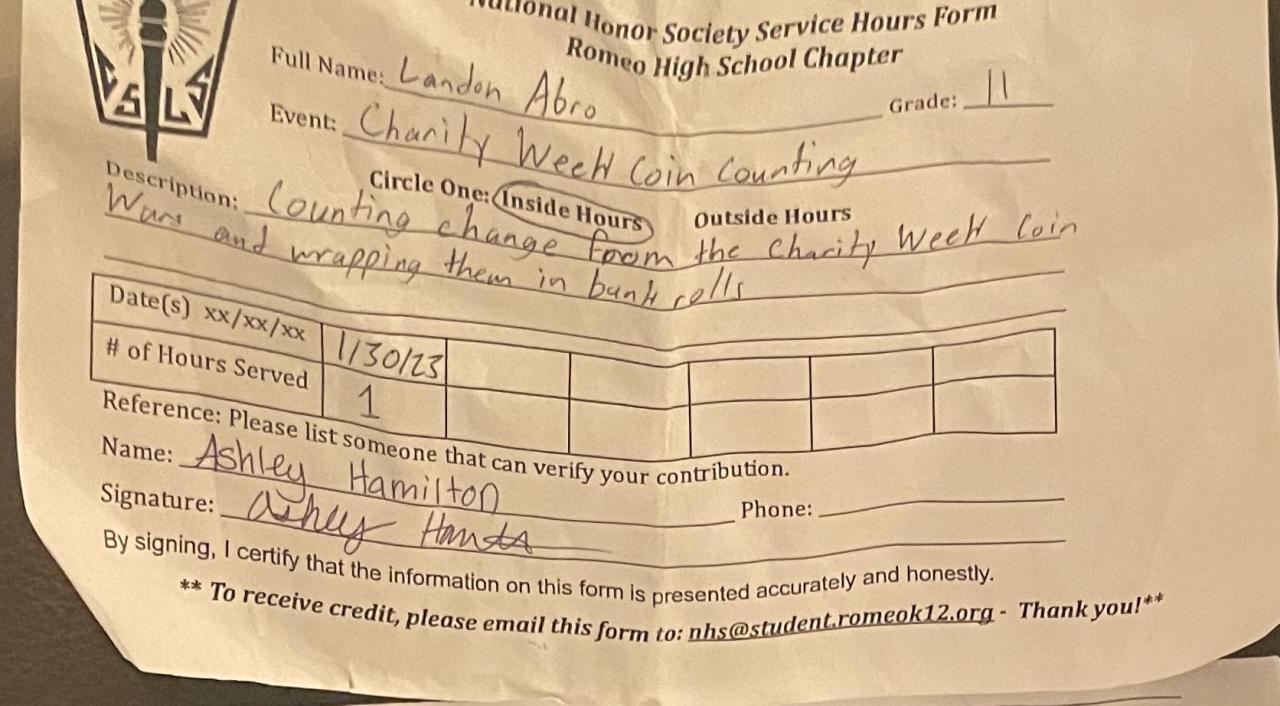 National Honor Society Service Hours Form
Romeo High School Chapter
Full Name: Landon Abro Grade: 11
Event: Charity Week Coin Counting
Circle One: Inside Hours Outside Hours
Description: Counting change from the Charity Week Coin
Wars and wrapping them in bank rolls
Date(s) xx/xx/xx 1/30/23
# of Hours Served 1
Reference: Please list someone that can verify your contribution.
Name: Ashley Hamilton
Phone:
Signature: Ashley
By signing, I certify that the information on this form is presented accurately and honestly.
** To receive credit, please email this form to: nhs@student.romeok12.org - Thank you!**
S L S